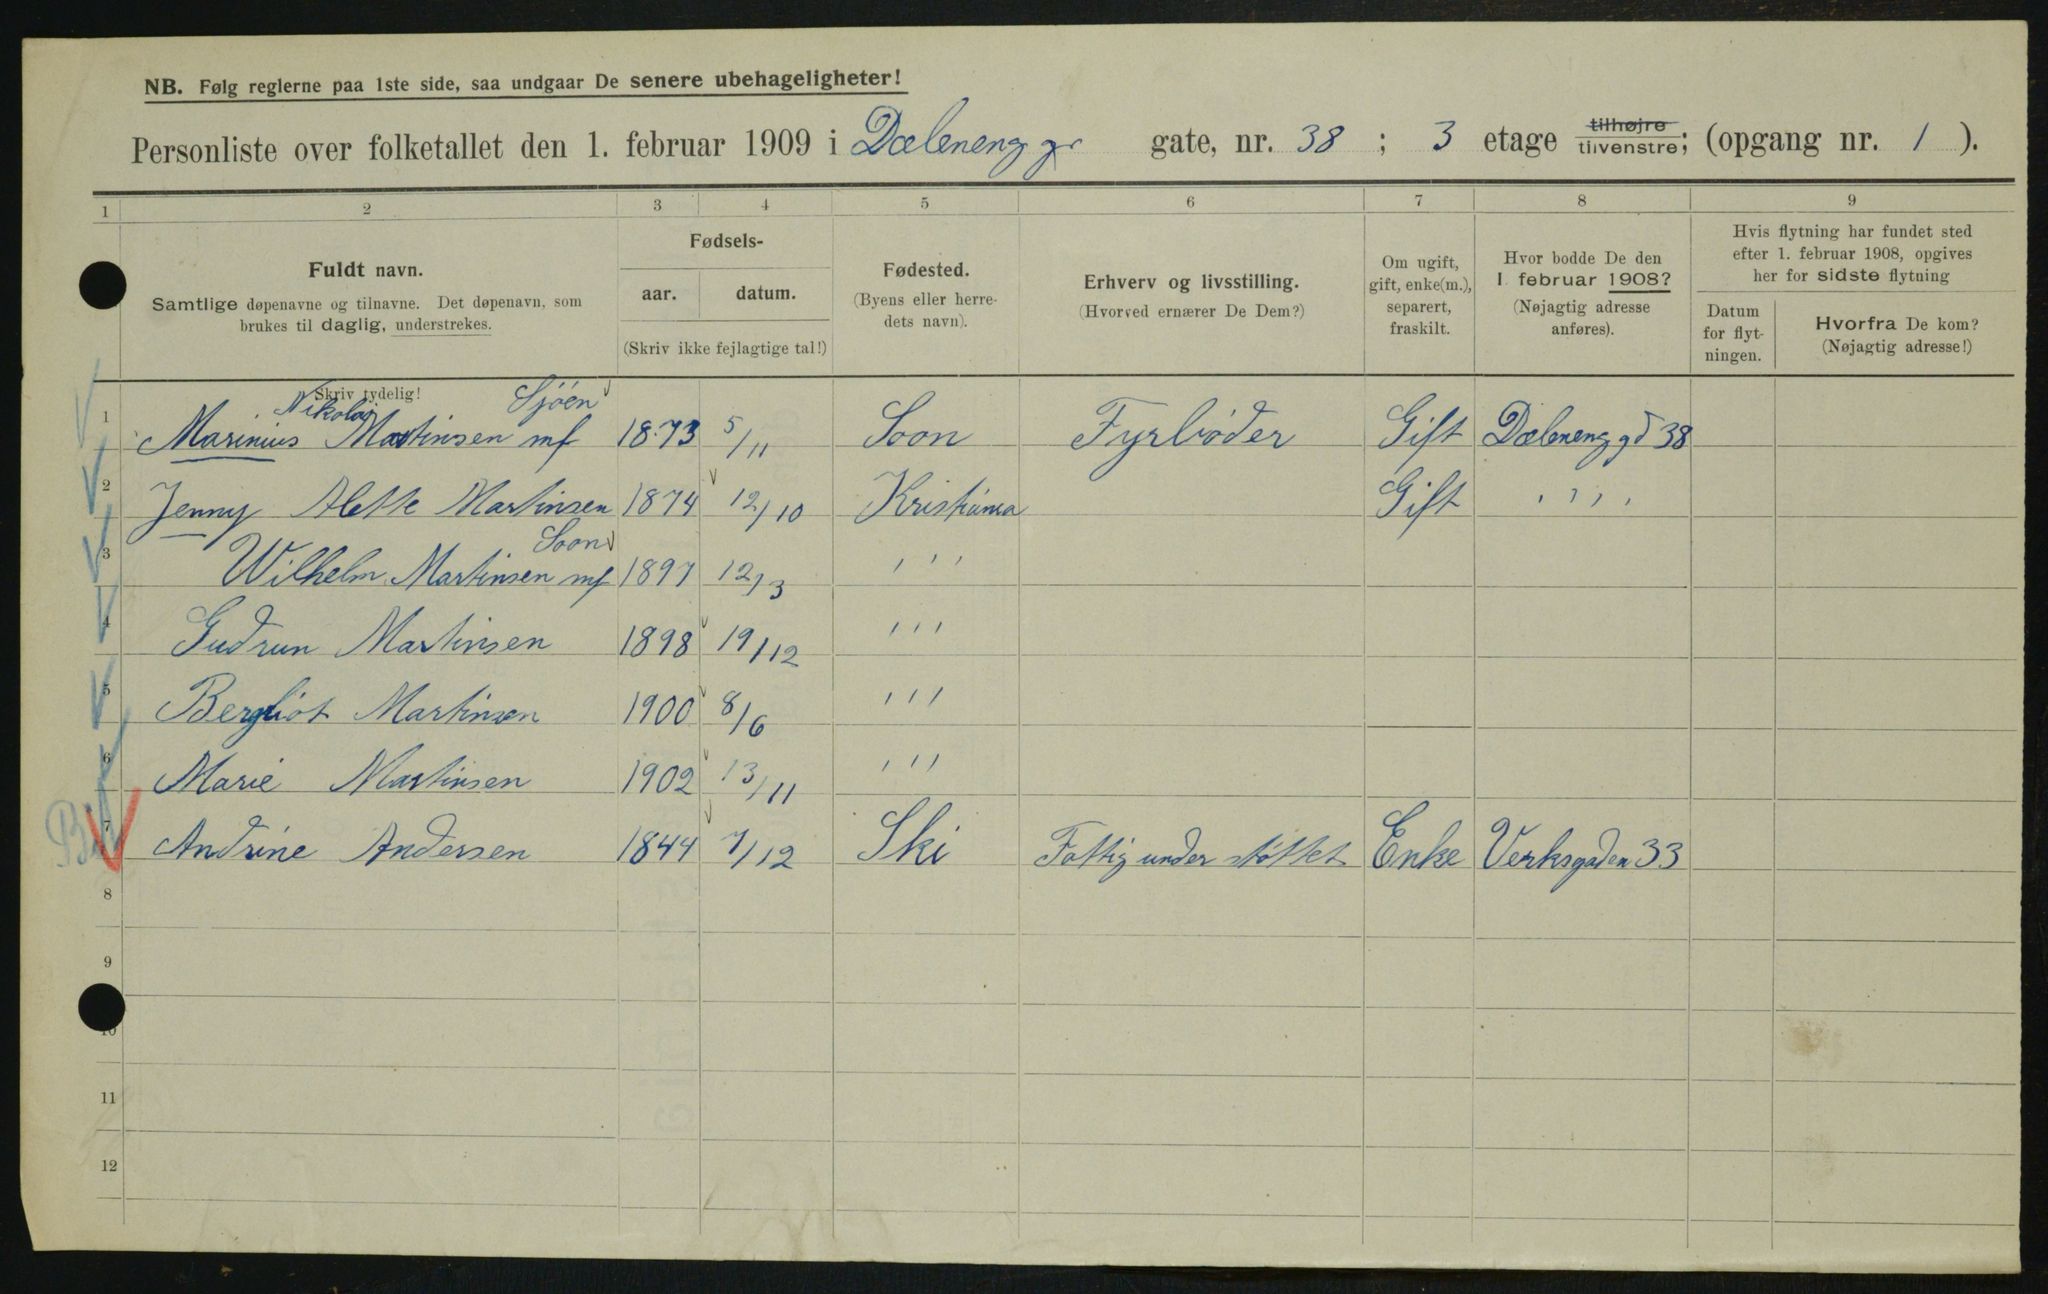 NB. Følg reglerne paa 1ste side, saa undgaar De senere ubehageligheter!
Personliste over folketallet den 1. februar 1909 i Dælenengg gate, nr. 38 ; 3 etage tilhøjre tilvenstre; (opgang nr. 1 ).
1 2 3 4 5 6 7 8 9
Fuldt navn.
Samtlige døpenavne og tilnavne. Det døpenavn, som
brukes til daglig, understrekes.
Fødsels-
aar. datum.
(Skriv ikke fejlagtige tal!)
Fødested.
(Byens eller herre-
dets navn).
Erhverv og livsstilling.
(Hvorved ernærer De Dem?)
Om ugift,
gift, enke(m.),
separert,
fraskilt.
Hvor bodde De den
1. februar 1908?
(Nøjagtig adresse
anføres).
Hvis flytning har fundet sted
efter 1. februar 1908, opgives
her for sidste flytning
Datum
for flyt-
ningen.
Hvorfra De kom?
(Nøjagtig adresse!)
Skriv tydelig!
Nikolai Sjöen
1 Marinius Martinsen mf 1873 5/11 Soon Fyrböder Gift Dælenenggd 38
2 Jenny Alette Martinsen 1874 12/10 Kristiania Gift " "
Soon
3 Wilhelm Martinsen mf 1897 12/3 ' ' '
4 Gudrun Martinsen 1898 19/12 ' ' '
5 Bergliot Martinsen 1900 8/6 ' ' '
6 Marie Martinsen 1902 13/11 ' ' '
7 Andrine Andersen 1844 7/12 Ski Fattig under støttet Enke Verksgaden 33
8
9
10
11
12